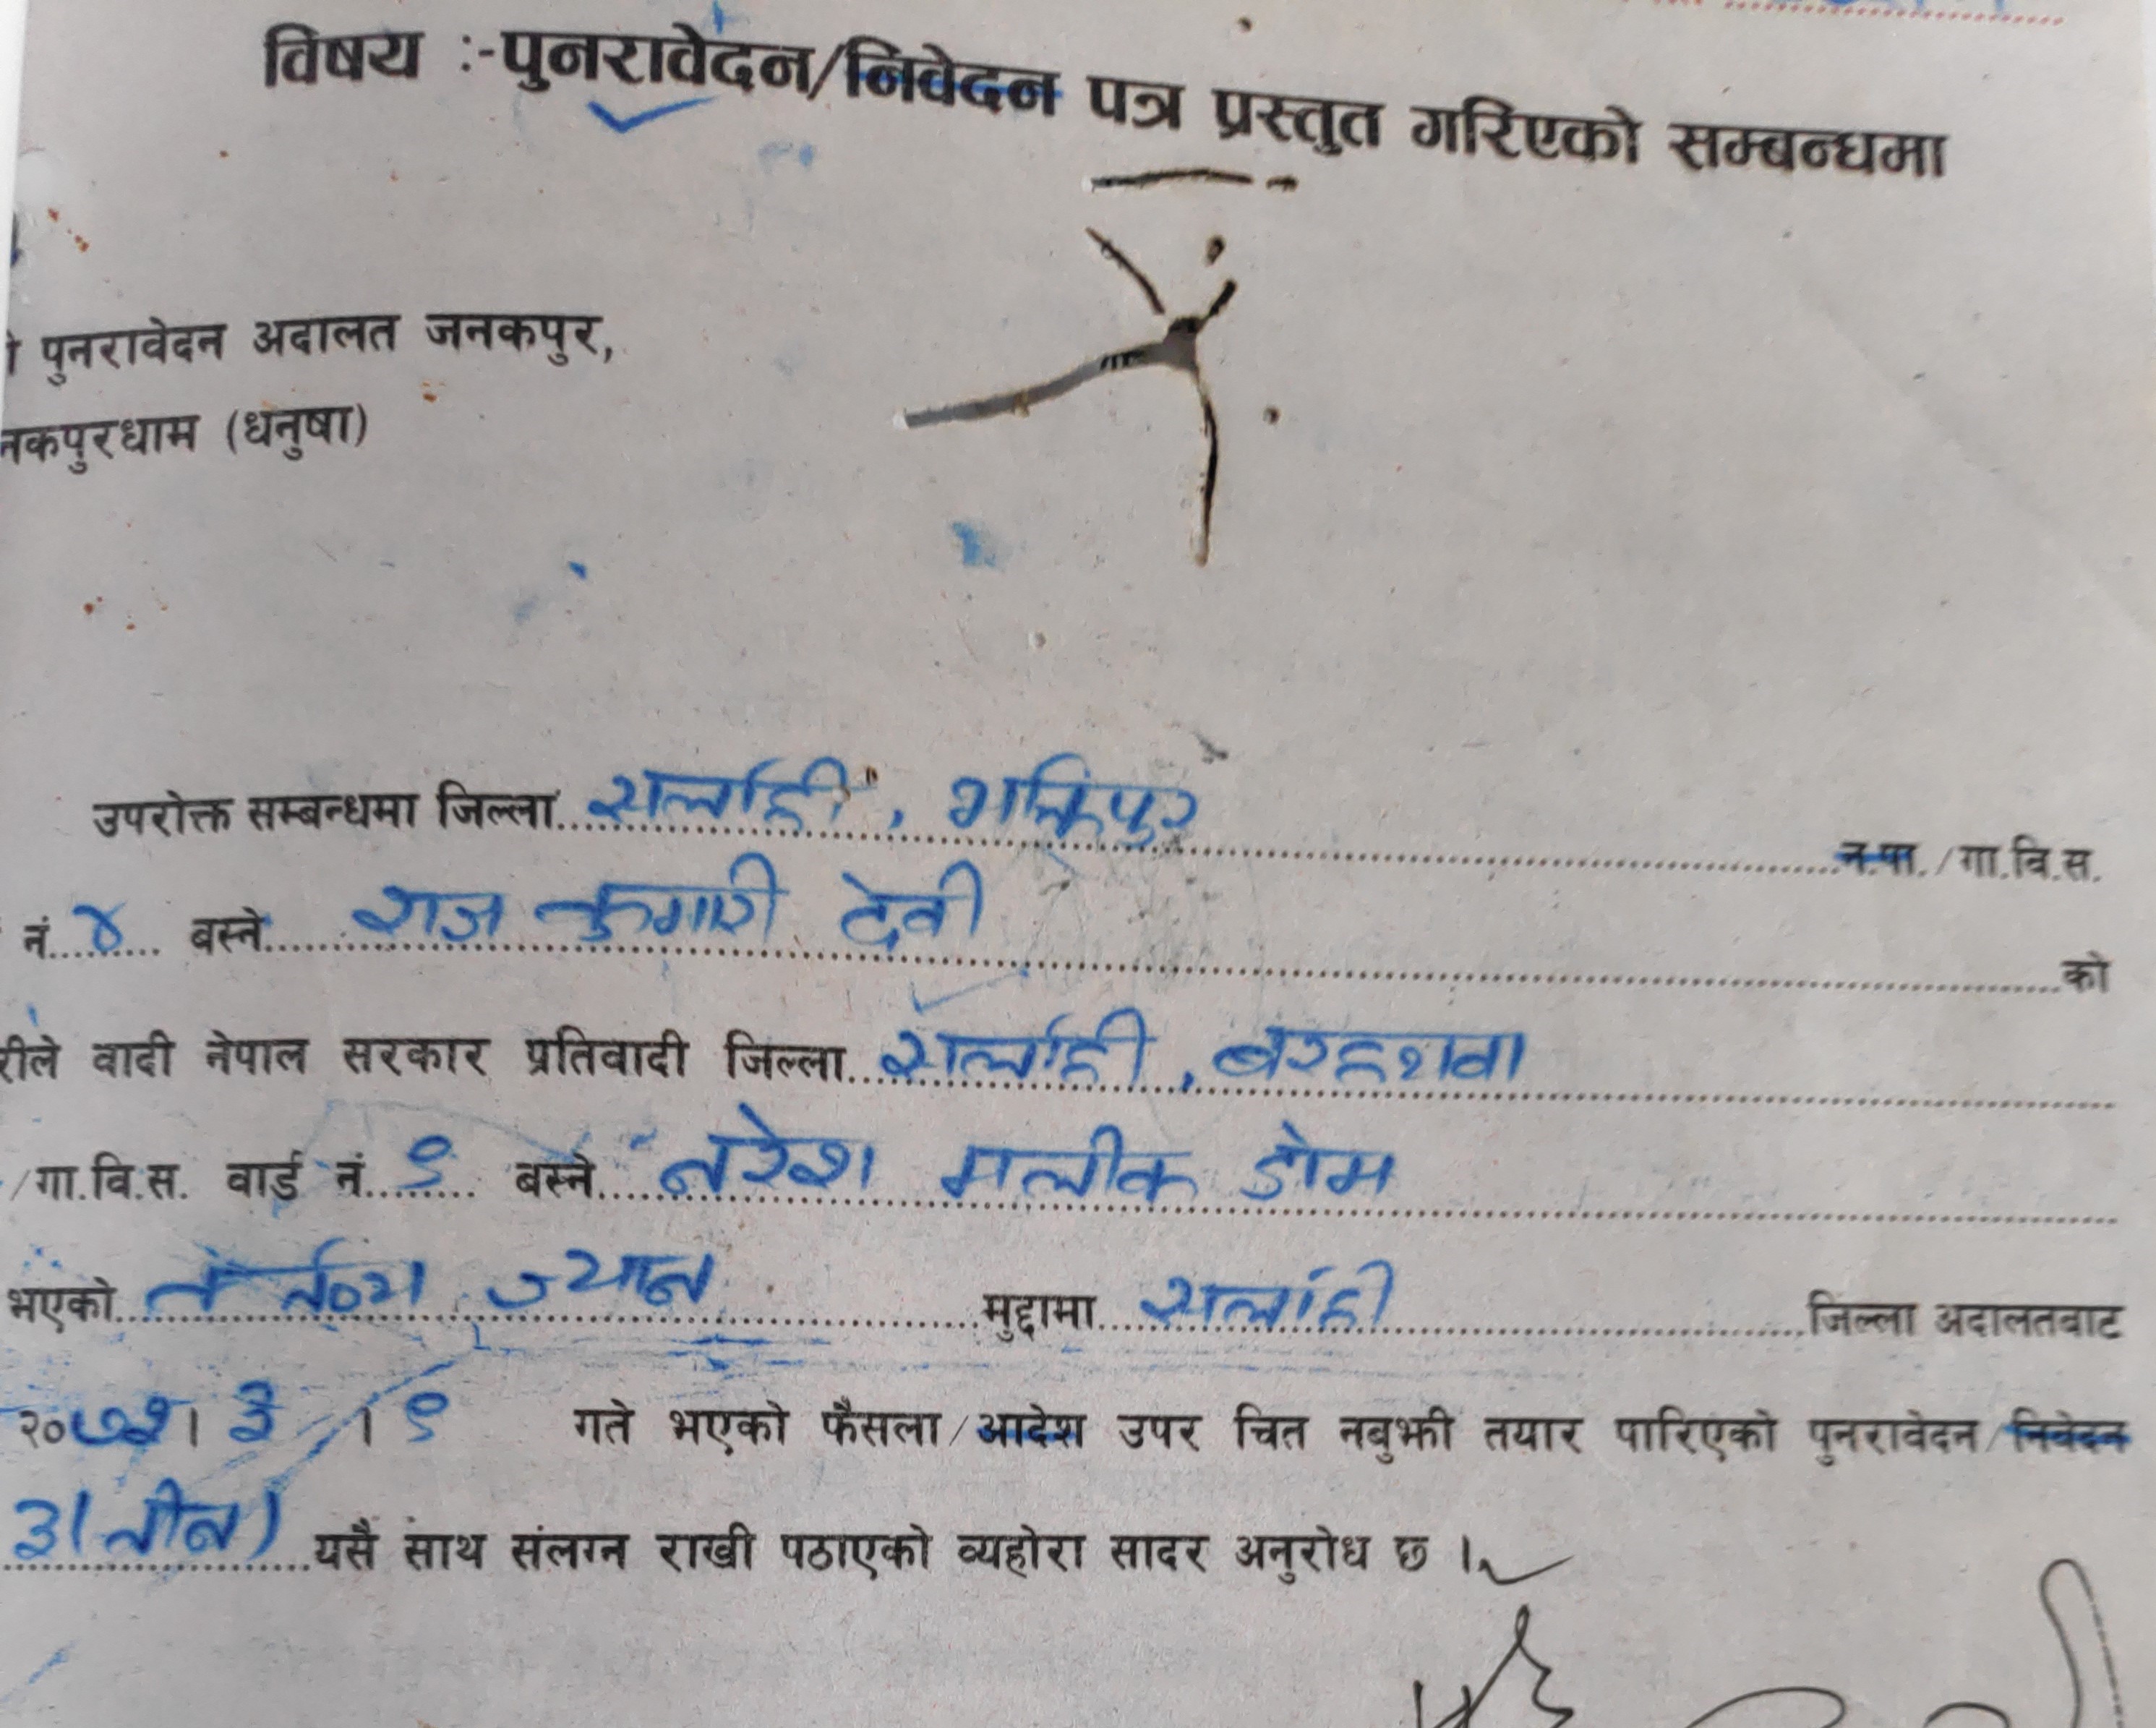 विषय :-पुनरावेदन/निवेदन पत्र प्रस्तुत गरिएको सम्बन्धमा
पुनरावेदन अदालत जनकपुर,
नकपुरधाम (धनुषा)
उपरोक्त सम्बन्धमा जिल्ला सर्लाही, भक्तिपुर न.पा./गा.वि.स.
नं. ४ बस्ने राज कुमारी देवी को
रीले वादी नेपाल सरकार प्रतिवादी जिल्ला सर्लाही, बरहथवा
/गा.वि.स. वार्ड नं. ९ बस्ने नरेश मलीक डोम
भएको कर्तव्य ज्यान मुद्दामा सर्लाही जिल्ला अदालतबाट
२०७२।३।९ गते भएको फैसला/आदेश उपर चित नबुझी तयार पारिएको पुनरावेदन/निवेदन
३(तीन) यसै साथ संलग्न राखी पठाएको व्यहोरा सादर अनुरोध छ ।